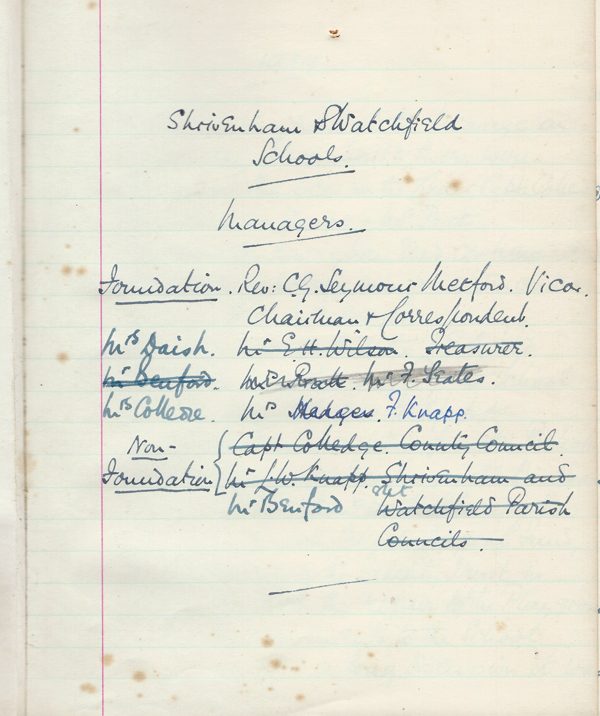 Shrivenham & Watchfield
Schools.
Managers.
Foundation. Rev: C.G. Seymour Metford. Vicar.
Chairman & Correspondent.
Mrs Daish. Mr E.H. Wilson. Treasurer.
Mr Benford. Mr F. Scates.
Mrs Mr F. Knapp.
Non- Capt Colledge. County Council.
Foundation Mr J.W. Knapp. Shrivenham and
Mr Benford Watchfield Parish
Councils.